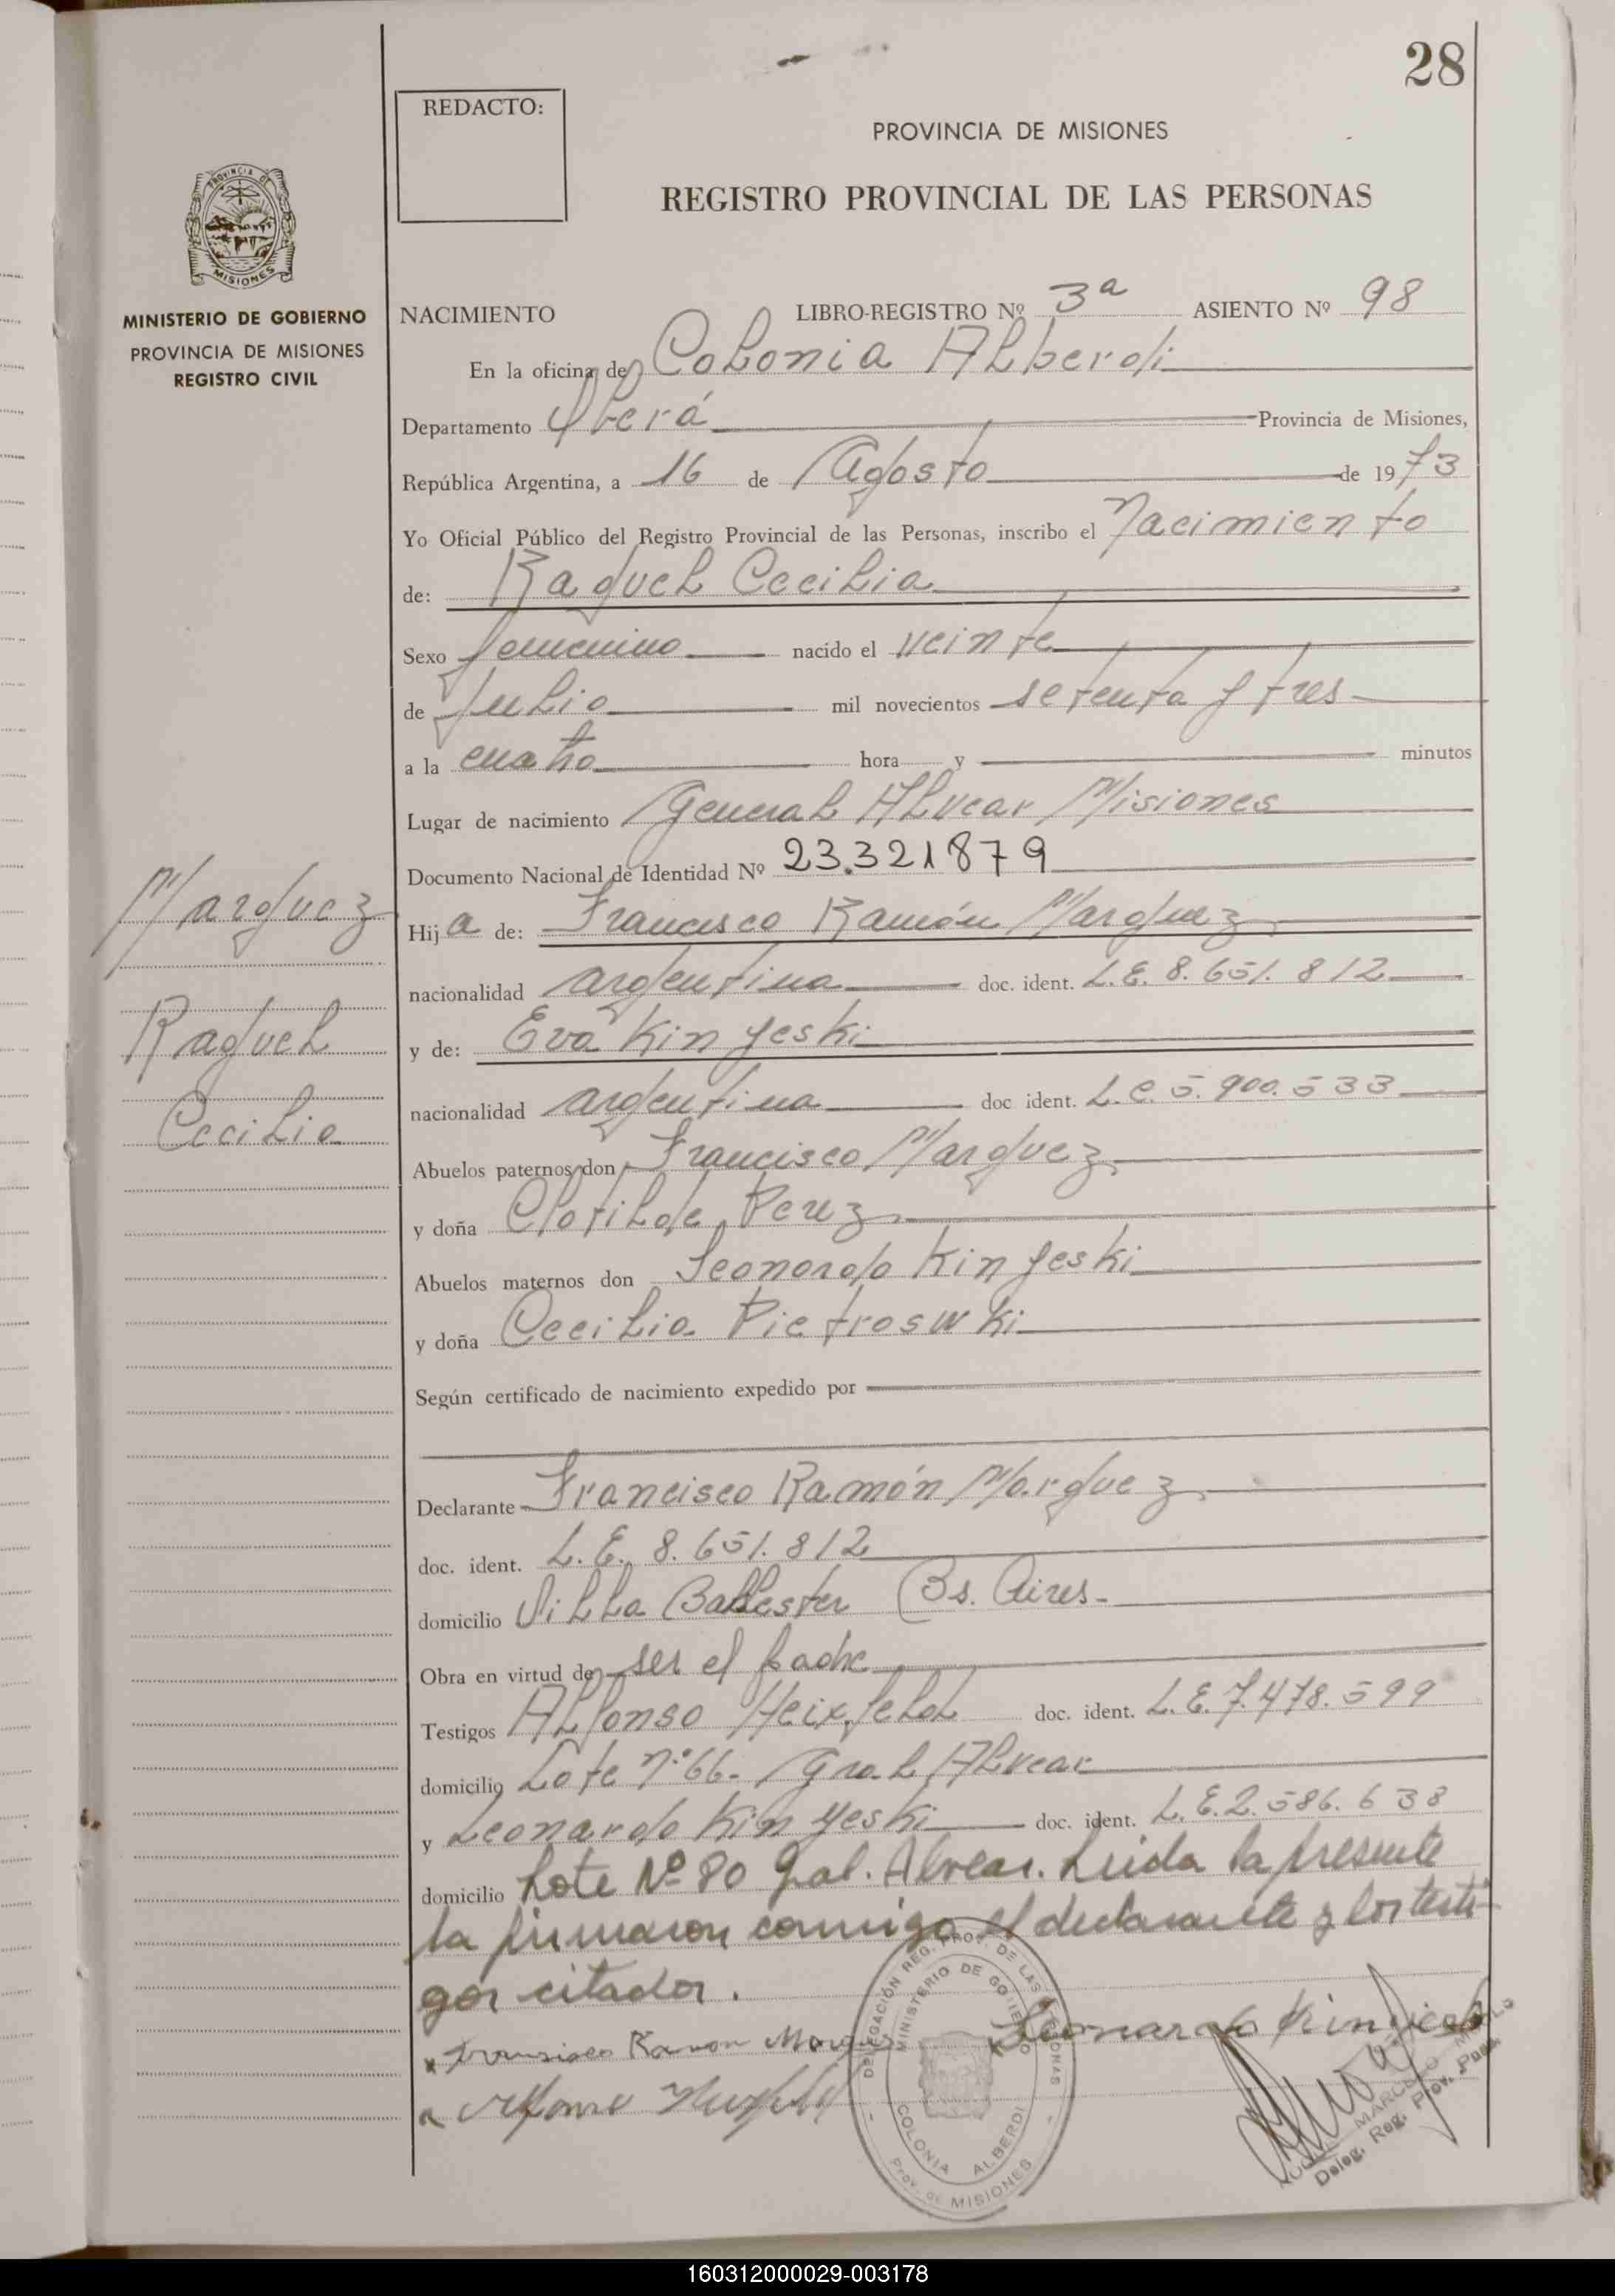 28
REDACTO:
PROVINCIA DE MISIONES
REGISTRO PROVINCIAL DE LAS PERSONAS
PROVINCIA DE
MISIONES
MINISTERIO DE GOBIERNO
PROVINCIA DE MISIONES
REGISTRO CIVIL
NACIMIENTO LIBRO-REGISTRO Nº 3ª ASIENTO Nº 98
En la oficina de Colonia Alberdi
Departamento Oberá Provincia de Misiones,
República Argentina, a 16 de Agosto de 1973
Yo Oficial Público del Registro Provincial de las Personas, inscribo el Nacimiento
de: Raquel Cecilia
Sexo femenino nacido el veinte
de Julio mil novecientos setenta y tres
a la cuatro hora y minutos
Lugar de nacimiento General Alvear Misiones
Documento Nacional de Identidad Nº 23.321879
Marquez
Hija de: Francisco Ramón Marquez
nacionalidad argentina doc. ident. L.E. 8.651.812
Raquel
y de: Eva Kinyeski
nacionalidad argentina doc ident. L.C. 5.900.533
Cecilia
Abuelos paternos don Francisco Marquez
y doña Clotilde Perez
Abuelos maternos don Leonardo Kinyeski
y doña Cecilia Pietroswki
Según certificado de nacimiento expedido por
Declarante Francisco Ramón Marquez
doc. ident. L.E. 8.651.812
domicilio Villa Ballester Bs. Aires-
Obra en virtud de ser el padre
Testigos Alfonso doc. ident. L.E. 7.478.599
domicilio Lote nº 66- Gral Alvear
y Leonardo Kinyeski doc. ident. L.E. 2.586.638
domicilio Lote Nº 80 Gral. Alvear. Leida la presente
la firmaron conmigo el declarante y los testi-
gos citados.
Francisco Ramon Marquez
Leonardo
DELEGACIÓN REG. PROV. DE LAS PERSONAS
MINISTERIO DE GOBIERNO
COLONIA ALBERDI
Prov. de MISIONES
Deleg. Reg. Prov. Pers.
160312000029-003178